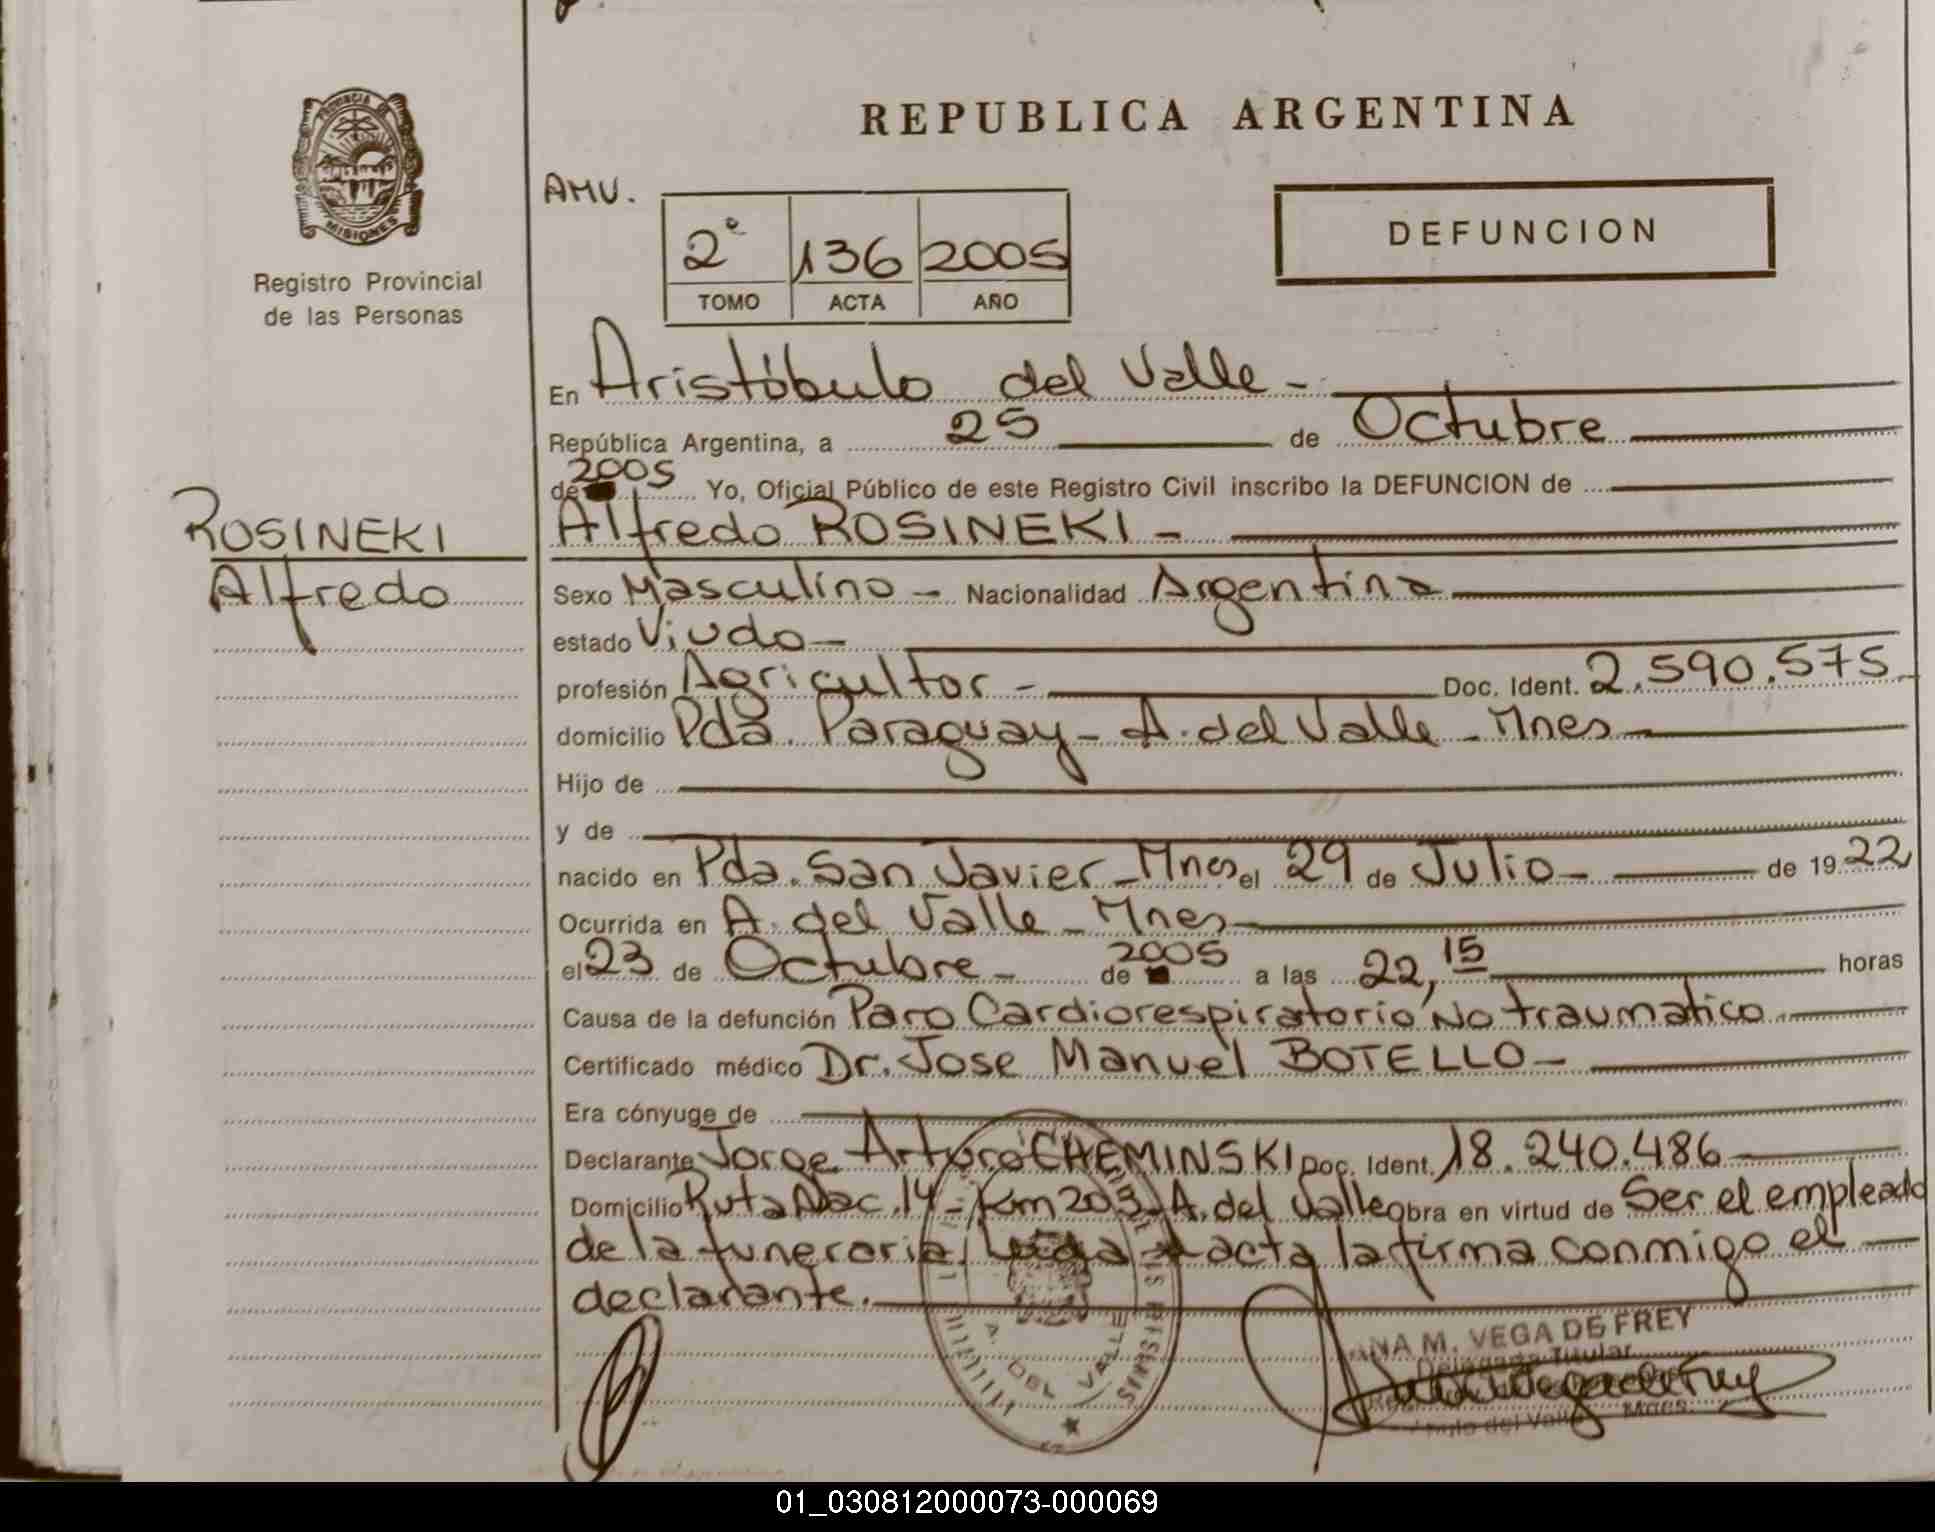 REPUBLICA ARGENTINA
PROVINCIA D
MISIONES
Registro Provincial
de las Personas
AMV.
2º 136 2005
TOMO ACTA AÑO
DEFUNCION
En Aristóbulo del Valle -
República Argentina, a 25 de Octubre
de 2005 Yo, Oficial Público de este Registro Civil inscribo la DEFUNCION de
ROSINEKI
Alfredo
Alfredo ROSINEKI -
Sexo Masculino - Nacionalidad Argentina
estado Viudo -
profesión Agricultor - Doc. Ident. 2.590.575
domicilio Pda. Paraguay - A. del Valle - Mnes
Hijo de
y de
nacido en Pda. San Javier - Mnes el 29 de Julio - de 19 22
Ocurrida en A. del Valle - Mnes
el 23 de Octubre - de 2005 a las 22,15 horas
Causa de la defunción Paro Cardiorespiratorio No traumatico
Certificado médico Dr. Jose Manuel BOTELLO -
Era cónyuge de
Declarante Jorge Arturo CHEMINSKI Doc. Ident. 18.240.486
Domicilio Ruta Nac. 14 - Km 203 - A. del Valle obra en virtud de Ser el empleado
de la funeraria. Leida el acta la firma conmigo el
declarante.
A. DEL VALLE
NA M. VEGA DE FREY
Delegada Titular
Mnes.
01_030812000073-000069